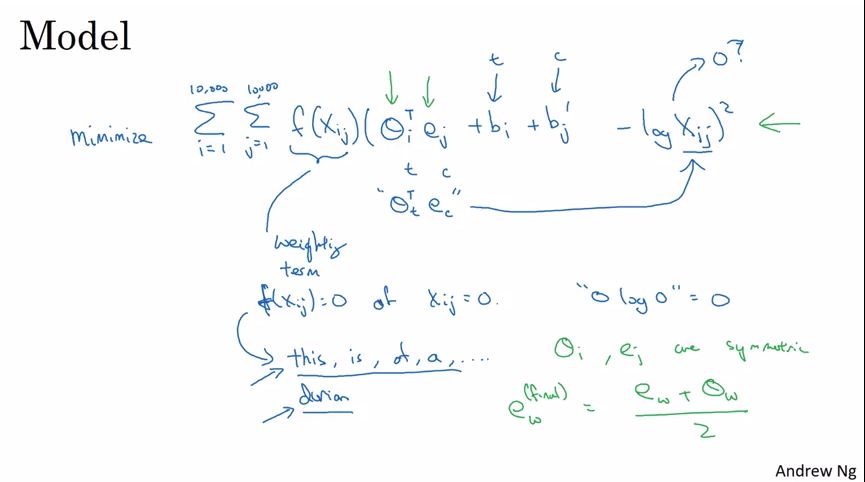 Model
t c → 0?
minimize \sum_{i=1}^{10,000} \sum_{j=1}^{10,000} f(X_{ij}) (θ_i^T e_j + b_i + b_j' - log X_{ij})^2 ←
t c
"θ_t^T e_c"
weighting
term
f(X_{ij}) = 0 if X_{ij} = 0. "0 log 0" = 0
this, is, of, a, .... θ_i, e_j are symmetric
durian
e_w^{(final)} = \frac{e_w + θ_w}{2}
Andrew Ng